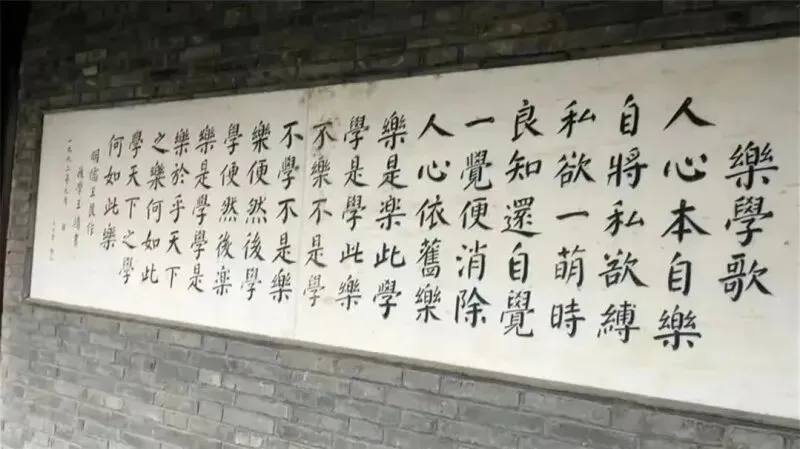 樂學歌
人心本自樂
自將私欲縛
私欲一萌時
良知還自覺
一覺便消除
人心依舊樂
樂是楽此學
學是學此樂
不樂不是學
不學不是樂
樂便然後學
學便然後楽
樂是學學是
樂於乎天下
之樂何如此
學天下之學
何如此樂
明儒王艮作
後學王書
一九八年九月